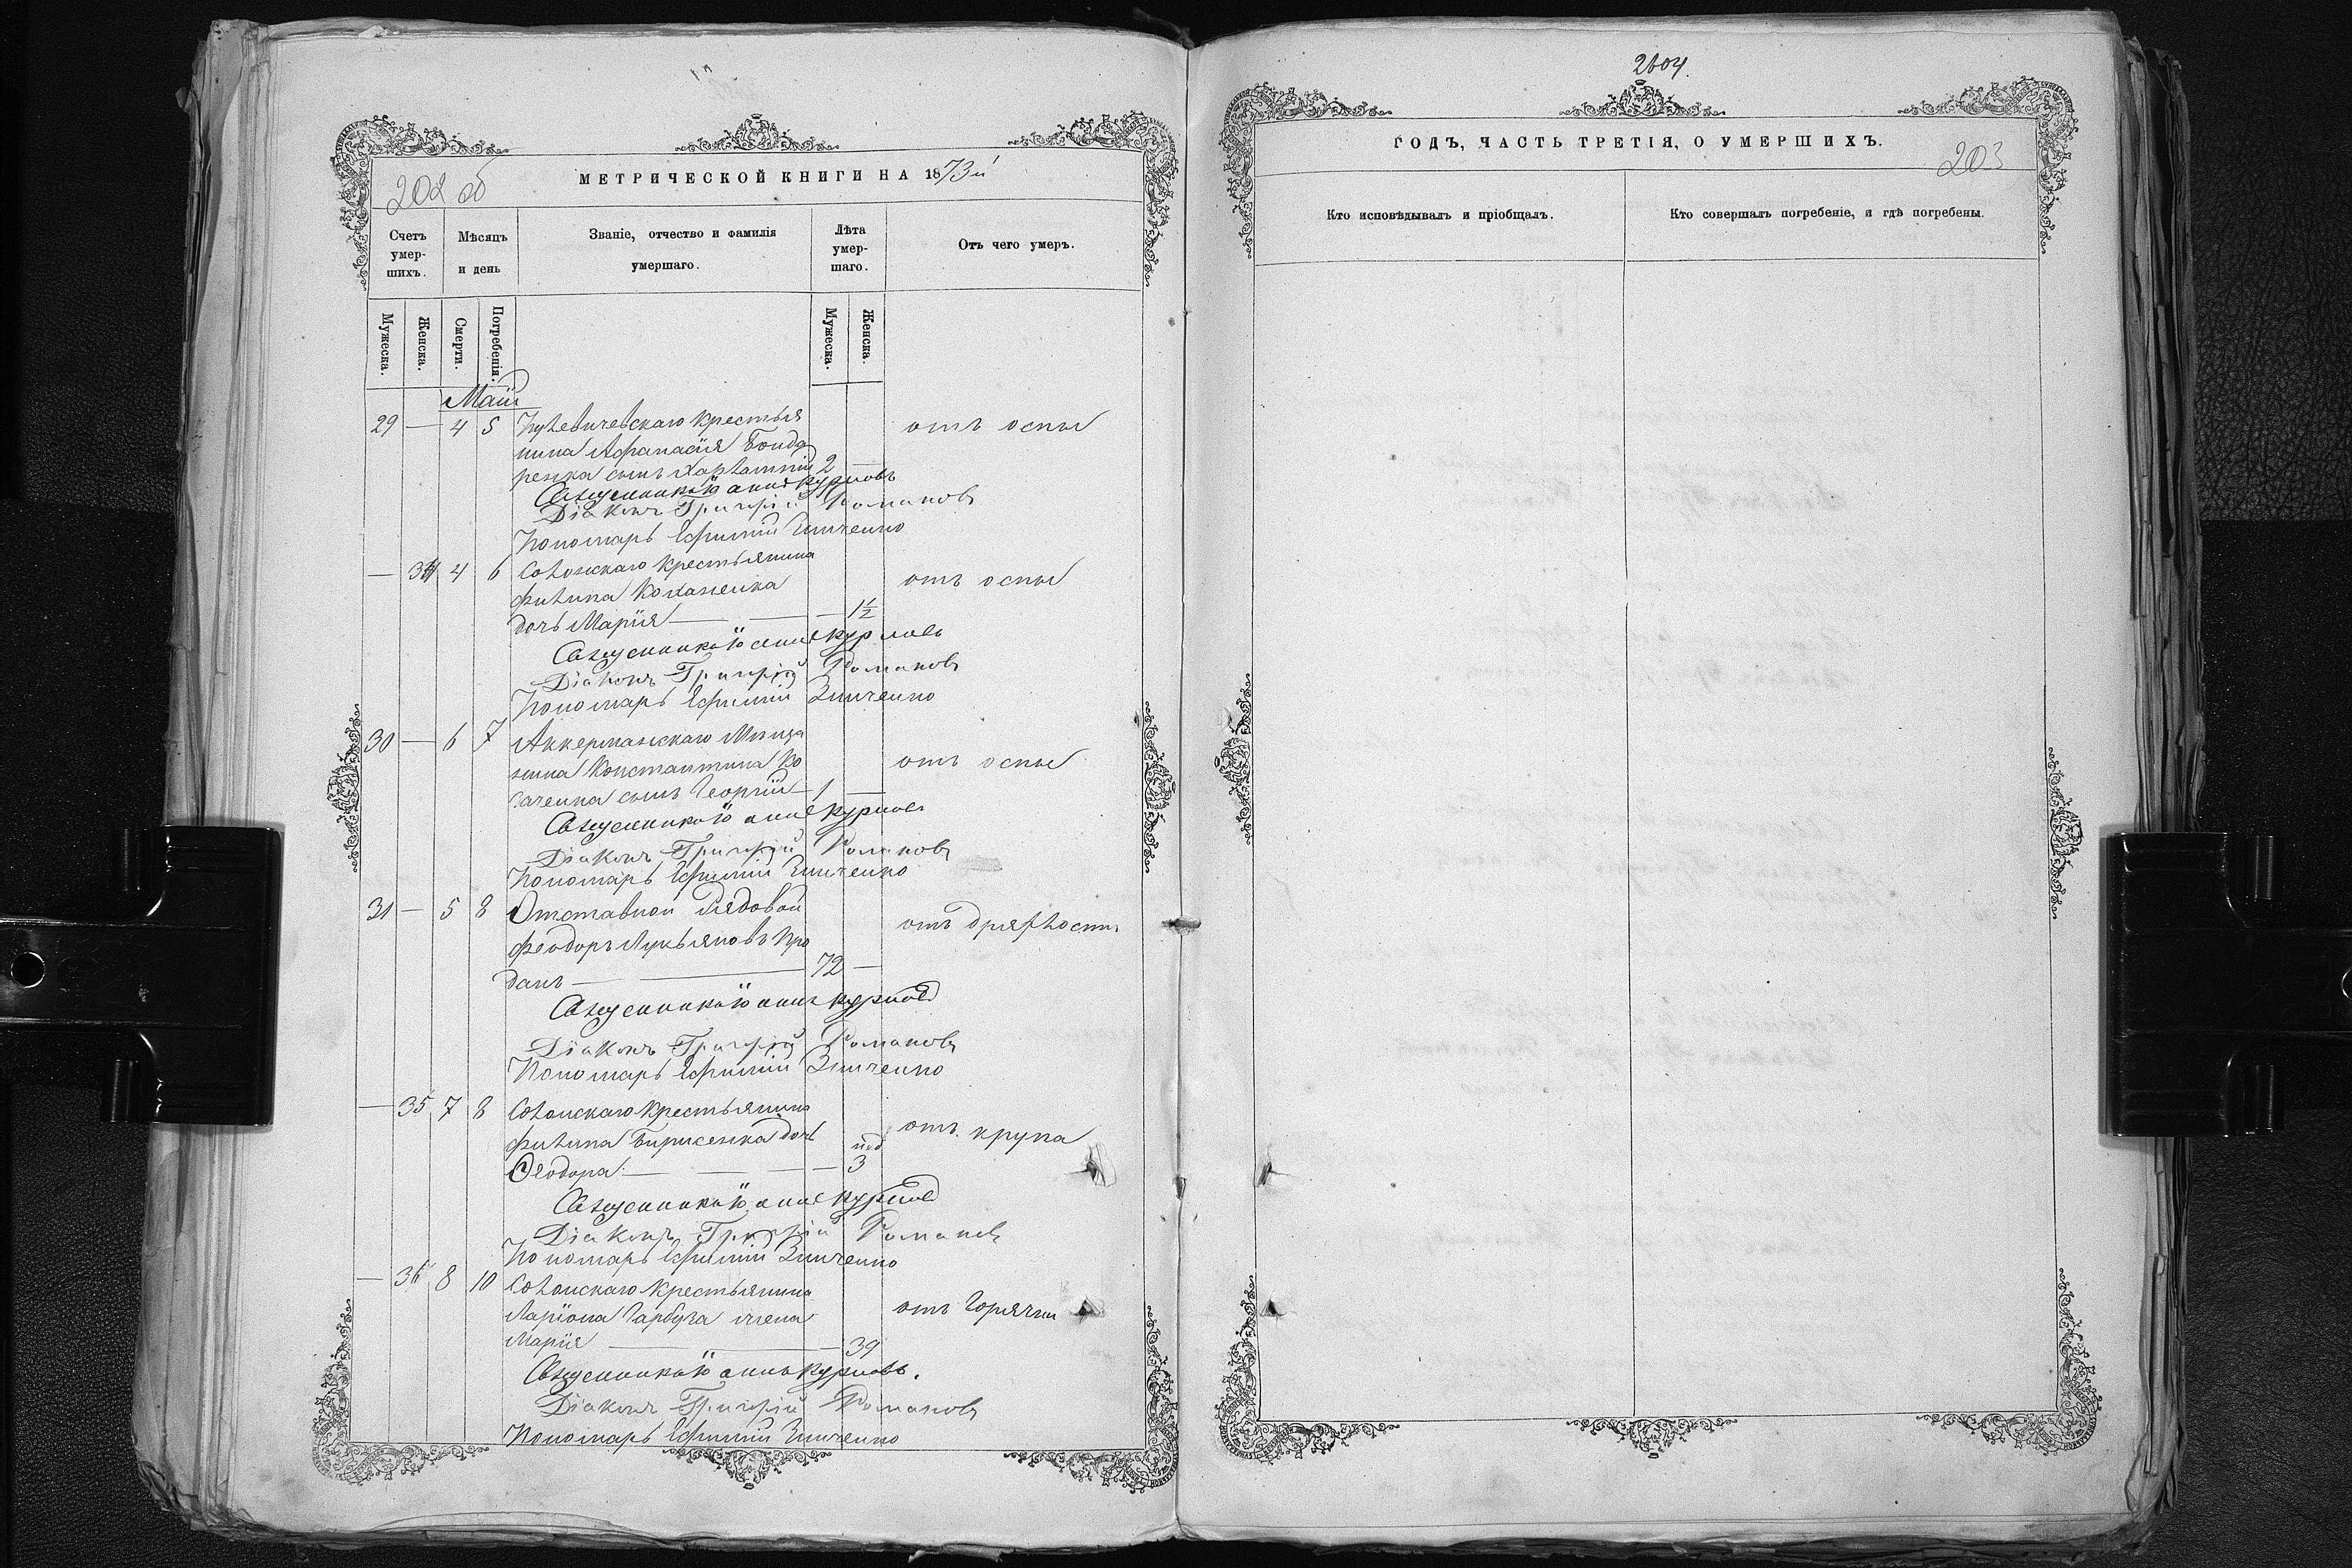 202 об
МЕТРИЧЕСКОЙ КНИГИ НА 1873й
Счетъ умер-шихъ.
Мѣсяцъ и день
Званіе, отчество и фамилія умершаго.
Лѣта умер-шаго.
Отъ чего умеръ.
Мужеска. Женска. Смерти. Погребенія. Мужеска. Женска.
Маій
29 — 4 5 крестья
нина Афанасія Бонда отъ оспы
ренка сынъ Харлампій 2 —
Священникъ Курловъ
Діаконъ Григорій Романовъ
Пономарь Ефимій Зинченко
— 34 4 6 крестьянина
Филипа Коханенка отъ оспы
дочь Марія — — — 1½
Священникъ Курловъ
Діаконъ Григорій Романовъ
Пономарь Ефимій Зинченко
30 — 6 7 Аккерманскаго Мѣща
нина Константина Ко отъ оспы
заченка сынъ Георгій — 1 —
Священникъ Курловъ
Діаконъ Григорій Романовъ
Пономарь Ефимій Зинченко
31 — 5 8 Отставной Рядовой
Феодоръ Лукьяновъ Про отъ дряхлости
данъ — 72 —
Священникъ Курловъ
Діаконъ Григорій Романовъ
Пономарь Ефимій Зинченко
— 35 7 8 крестьянина
Филипа дочь отъ крупа
Феодора — — — 3
Священникъ Курловъ
Діаконъ Григорій Романовъ
Пономарь Ефимій Зинченко
— 36 8 10 крестьянина
Ларіона Гарбуза жена отъ горячки
Марія — 39
Священникъ Курловъ.
Діаконъ Григорій Романовъ
Пономарь Ефимій Зинченко
2604.
ГОДЪ, ЧАСТЬ ТРЕТІЯ, О УМЕРШИХЪ.
203
Кто исповѣдывалъ и пріобщалъ.
Кто совершалъ погребеніе, и гдѣ погребены.